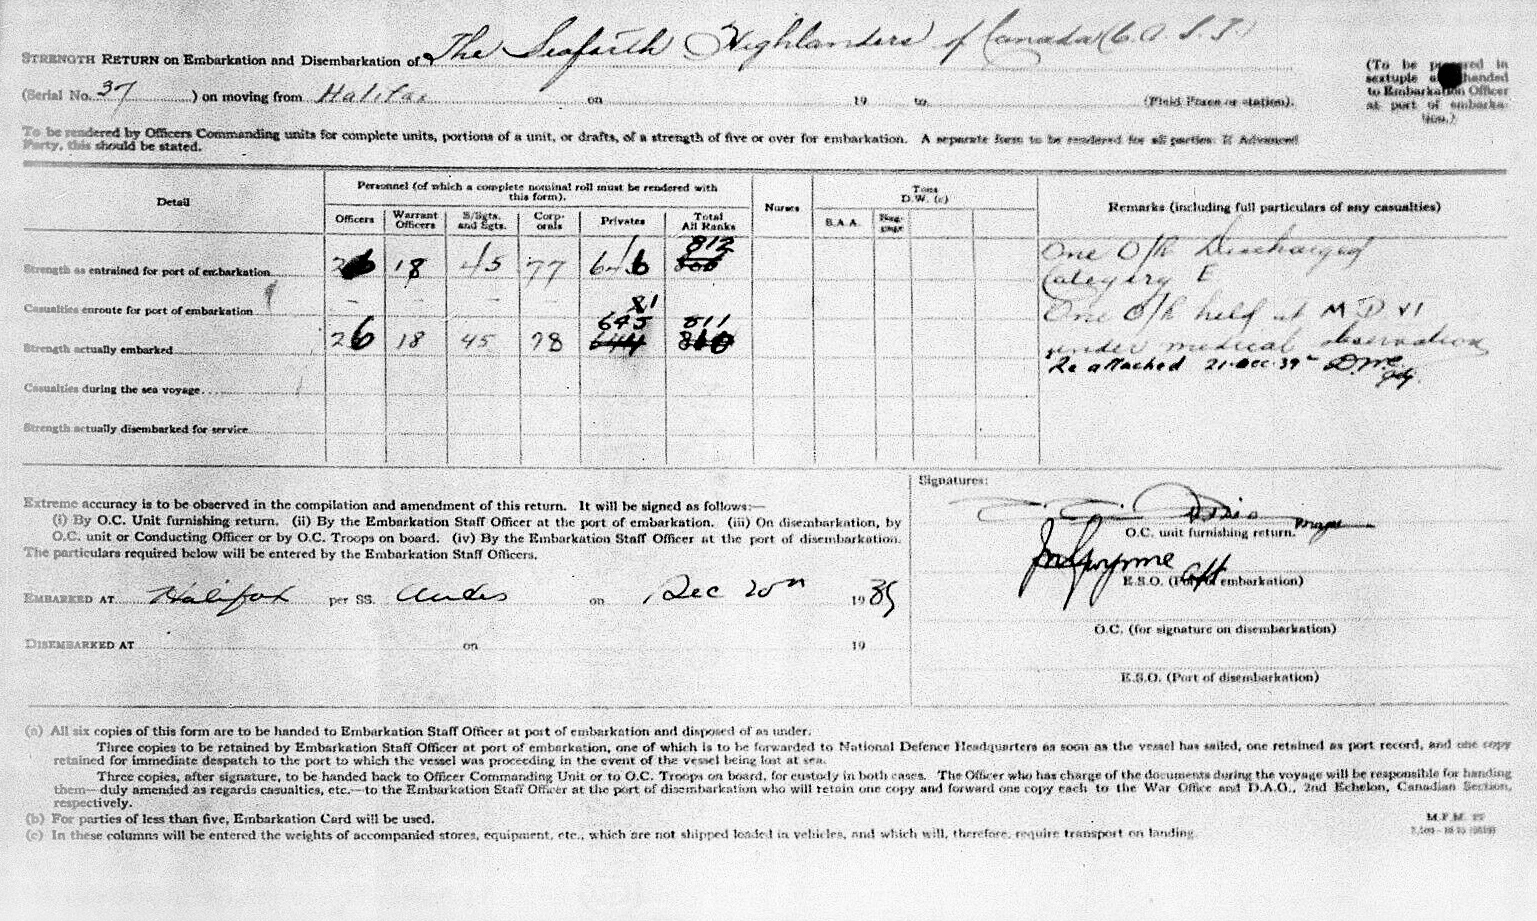 STRENGTH RETURN on Embarkation and Disembarkation of The Seaforth Highlanders of Canada (C.A.S.F.)
(To be prepared in
sextuple and handed
to Embarkation Officer
at port of embarka-
tion.)
(Serial No. 37 ) on moving from Halifax on 19 to (Field Force or station).
To be rendered by Officers Commanding units for complete units, portions of a unit, or drafts, of a strength of five or over for embarkation. A separate form to be rendered for all parties. If Advanced
Party, this should be stated.
Detail
Personnel (of which a complete nominal roll must be rendered with
this form).
Officers Warrant Officers S/Sgts. and Sgts. Corporals Privates Total All Ranks
Nurses
Tons
D.W. (c)
B.A.A. Baggage
Remarks (including full particulars of any casualties)
Strength as entrained for port of embarkation 26 18 45 77 646 812
Casualties enroute for port of embarkation – – – –
Strength actually embarked 26 18 45 78 645 644 811
Casualties during the sea voyage
Strength actually disembarked for service
One O/R Discharged
Category E
One O/R held at M D VI
under medical observation
Re attached 21-Dec-39
Extreme accuracy is to be observed in the compilation and amendment of this return. It will be signed as follows:—
(i) By O.C. Unit furnishing return. (ii) By the Embarkation Staff Officer at the port of embarkation. (iii) On disembarkation, by
O.C. unit or Conducting Officer or by O.C. Troops on board. (iv) By the Embarkation Staff Officer at the port of disembarkation.
The particulars required below will be entered by the Embarkation Staff Officers.
EMBARKED AT Halifax per SS. Andes on Dec 20th 1939
DISEMBARKED AT on 19
Signatures:
O.C. unit furnishing return.
E.S.O. (Port of embarkation)
O.C. (for signature on disembarkation)
E.S.O. (Port of disembarkation)
(a) All six copies of this form are to be handed to Embarkation Staff Officer at port of embarkation and disposed of as under.
Three copies to be retained by Embarkation Staff Officer at port of embarkation, one of which is to be forwarded to National Defence Headquarters as soon as the vessel has sailed, one retained as port record, and one copy
retained for immediate despatch to the port to which the vessel was proceeding in the event of the vessel being lost at sea.
Three copies, after signature, to be handed back to Officer Commanding Unit or to O.C. Troops on board, for custody in both cases. The Officer who has charge of the documents during the voyage will be responsible for handing
them—duly amended as regards casualties, etc.—to the Embarkation Staff Officer at the port of disembarkation who will retain one copy and forward one copy each to the War Office and D.A.G., 2nd Echelon, Canadian Section,
respectively.
(b) For parties of less than five, Embarkation Card will be used.
(c) In these columns will be entered the weights of accompanied stores, equipment, etc., which are not shipped loaded in vehicles, and which will, therefore, require transport on landing.
M.F.M.